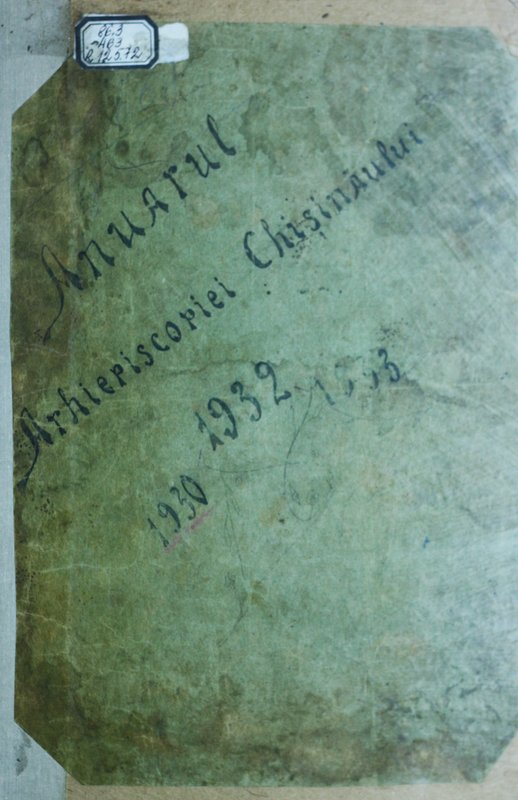 86.3
A 12572
Anuarul
Arhiepiscopiei Chişinăului
1932 1933
1930